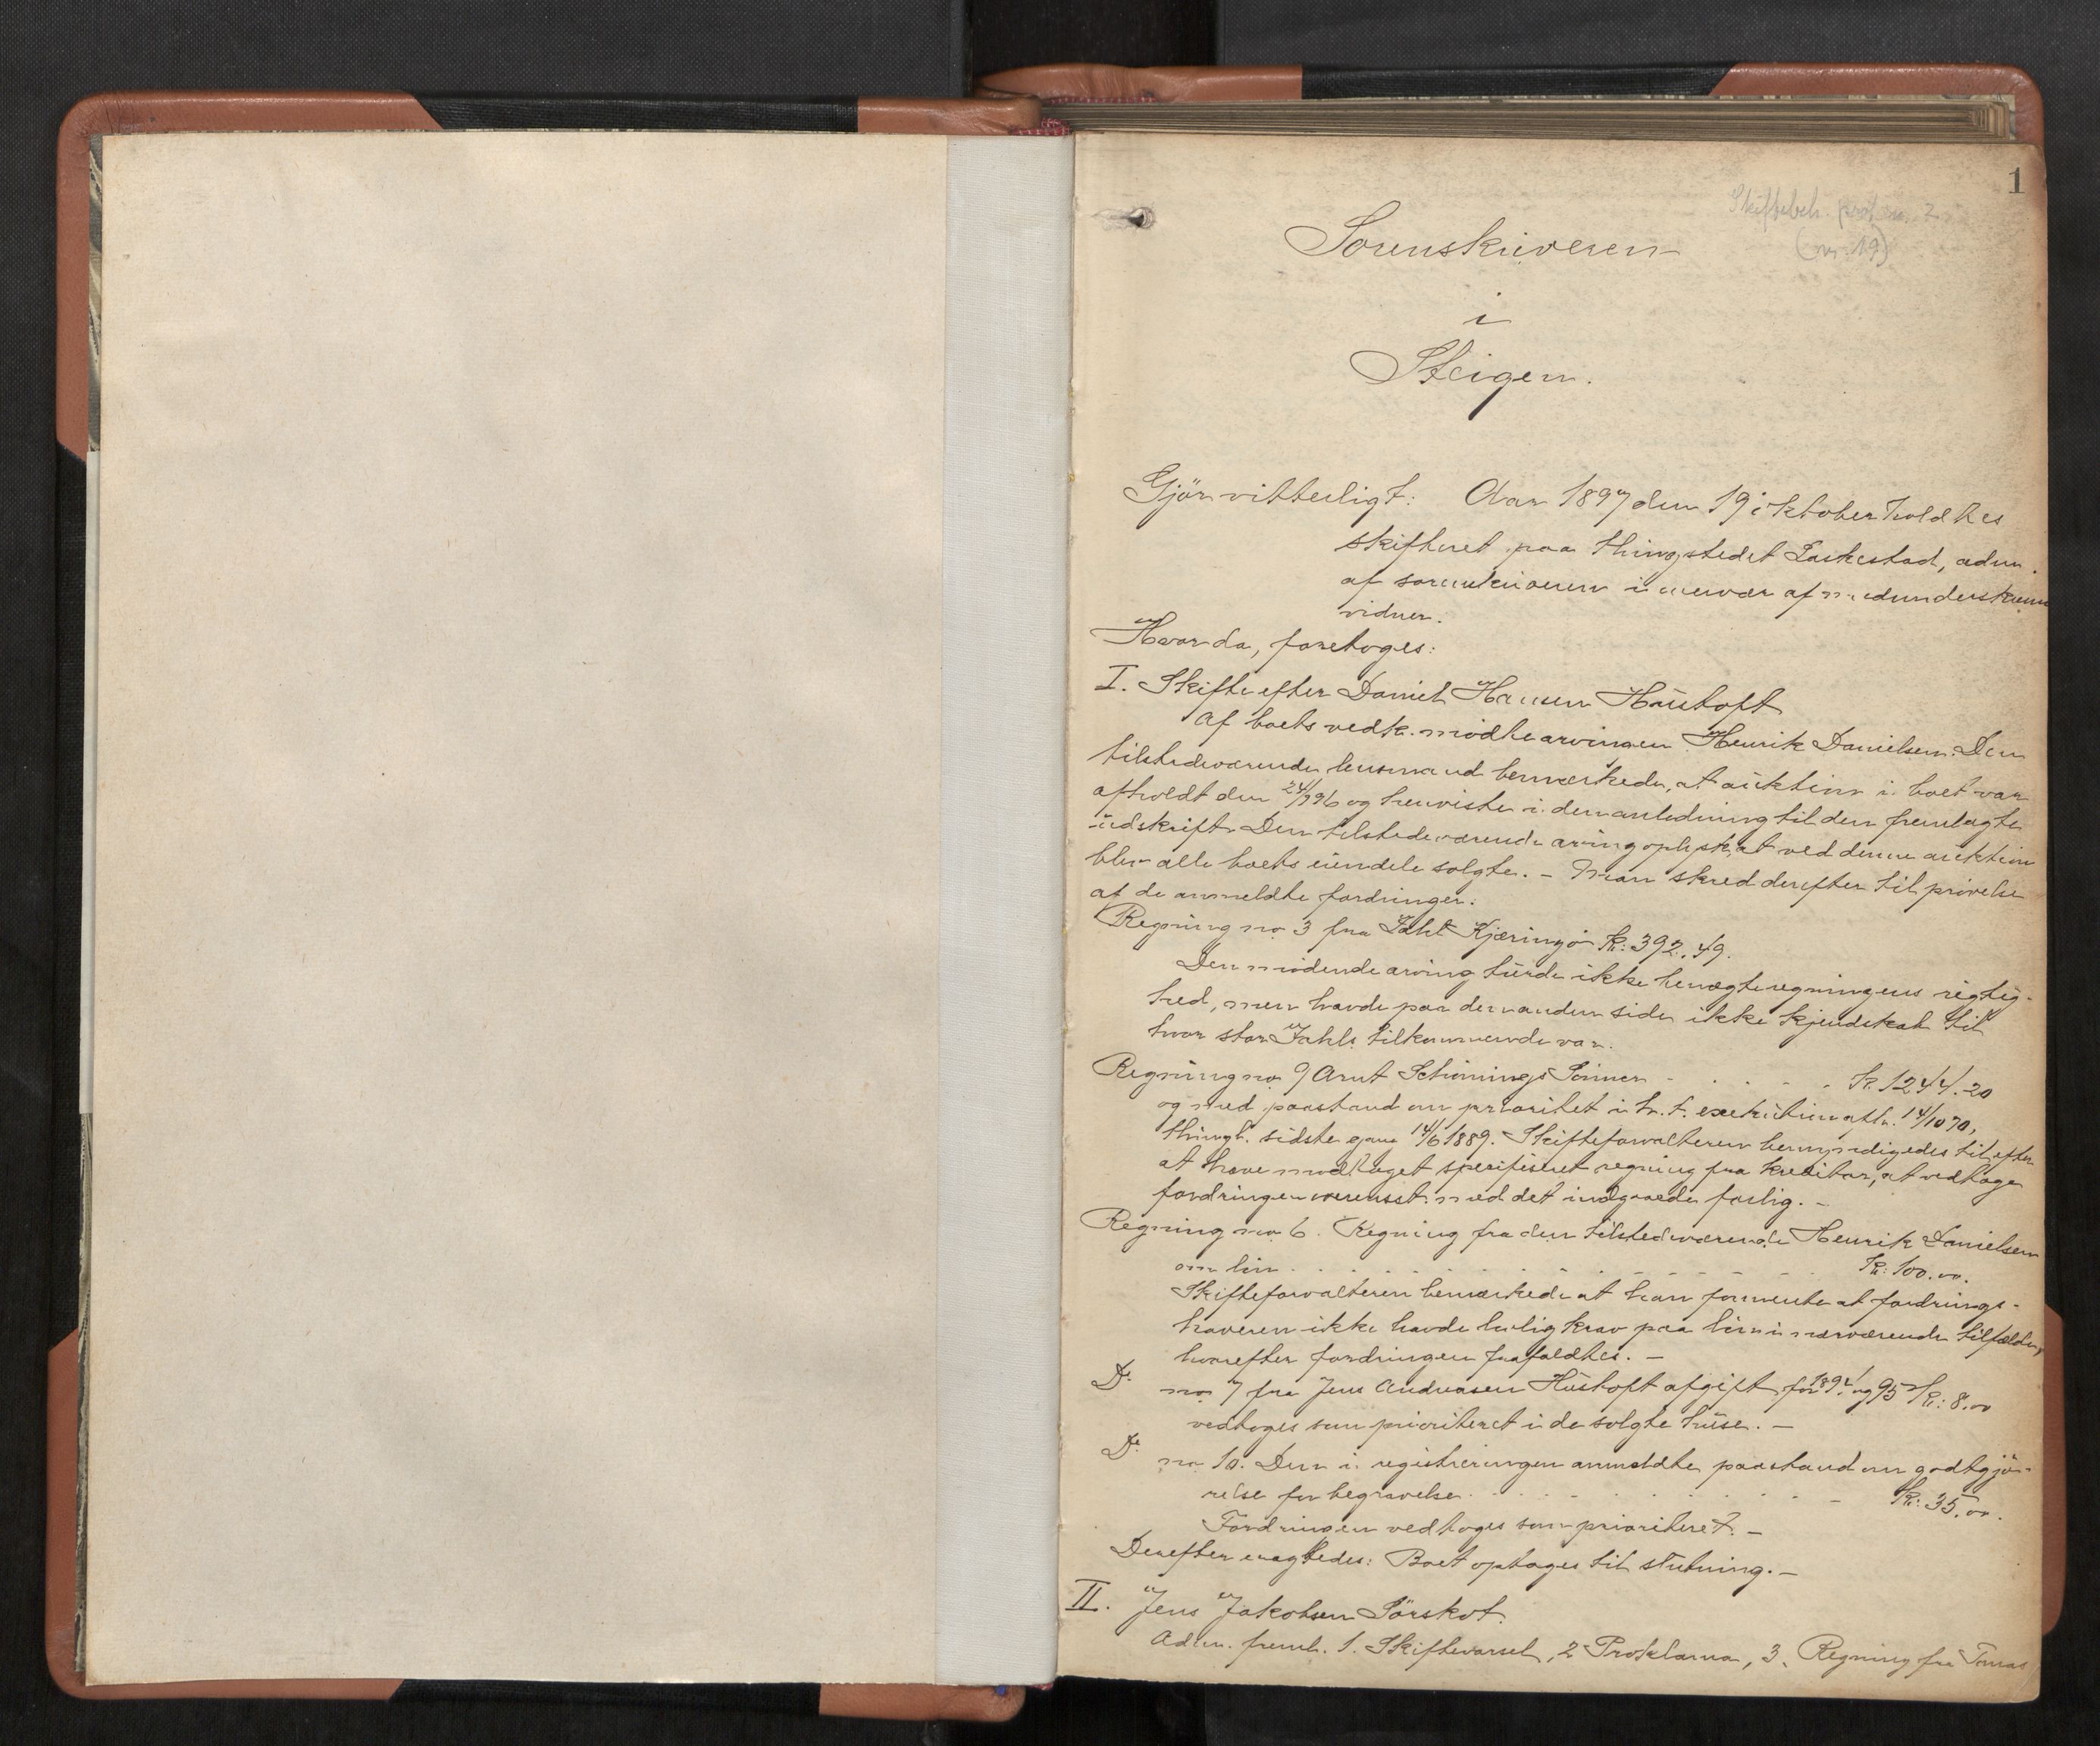 1
Skiftebeh. prot. nr. 2
(nr. 19)
Sorenskriveren
i
Steigen.
Gjör vitterligt: Aar 1897 den 19 oktober holdtes
skifteret paa thingstedet Laskestad, adm.
af sorenskriveren i overvær af medunderskrevne
vidner.
Hvor da, foretoges:
I. Skifte efter Daniel Hansen Hustoft
Af boets vedk. mödte arvingen Henrik Danielsen. Den
tilstedeværende lensmand bemærkede, at auktion i boet var
afholdt den 24/7 96 og henviste i den anledning til den fremlagte
udskrift. Den tilstedeværende arving oplyste, at ved denne auktion
blev alle boets eiendele solgte. - Man skred derefter til prövelse
af de anmeldte fordringer.
Regning no 3 fra Jahl Kjæringö Kr: 392.49.
Den mödende arving turde ikke benægte regningens rigtig-
hed, men havde paa den anden side ikke kjendskab til
hvor stor Jahls tilkommende var.
Regning no 9 Arnt Schönings Sönner - . . . . Kr. 1244.20
og med paastand om prioritet i h. t. exekution afh. 14/10 70,
thingl. sidste gang 14/6 1889. Skifteforvalteren bemyndigedes til, efter
at have modtaget specificeret regning fra kreditor, at vedtage
fordringen overensst. med det indgaaede forlig. -
Regning no 6. Regning fra den tilstedeværende Henrik Danielsen
om lön . . . . . . . . . . Kr: 100.00.
Skifteforvalteren bemærkede at han formente at fordrings-
haveren ikke havde lovlig krav paa lön i nærværende tilfælde,
hvorefter fordringen frafaldtes. -
Do no 7 fra Jens Andreasen Hustoft afgift for 1894 og 95 Kr: 8.00
vedtoges som prioriteret i de solgte huse. -
Do no 10. Den i registreringen anmeldte paastand om godtgjö-
relse for begravelse . . . . . . . - Kr: 35.00.
Fordringen vedtoges som prioriteret. -
Derefter eragtedes: Boet optages til slutning. -
II. Jens Jakobsen Sörskot.
Adm. freml. 1. Skiftevarsel, 2 Proklama, 3. Regning fra Tomas